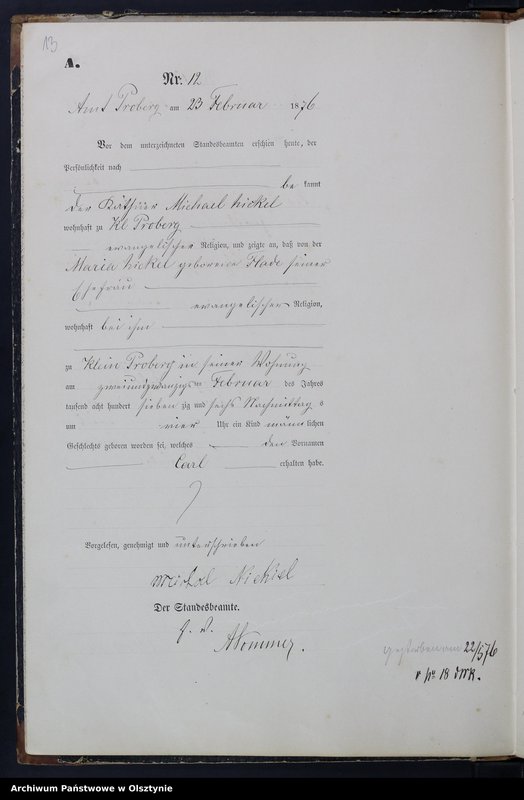 13
A.
Nr. 12
Amt Proberg am 23 Februar 1876
Vor dem unterzeichneten Standesbeamten erschien heute, der
Persönlichkeit nach
be kannt
der Käthner Michael Nickel
wohnhaft zu Kl Proberg
evangelischer Religion, und zeigte an, daß von der
Maria Nickel geborene seiner
Ehefrau
evangelischer Religion,
wohnhaft bei ihm
zu Klein Proberg in seiner Wohnung
am zweiundzwanzigsten Februar des Jahres
tausend acht hundert sieben zig und sechs Nachmittag s
um vier Uhr ein Kind männ lichen
Geschlechts geboren worden sei, welches den Vornamen
Carl erhalten habe.
Vorgelesen, genehmigt und unterschrieben
Michal Nickiel
Der Standesbeamte.
gestorben am 22/5 76
v No 18
Archiwum Państwowe w Olsztynie